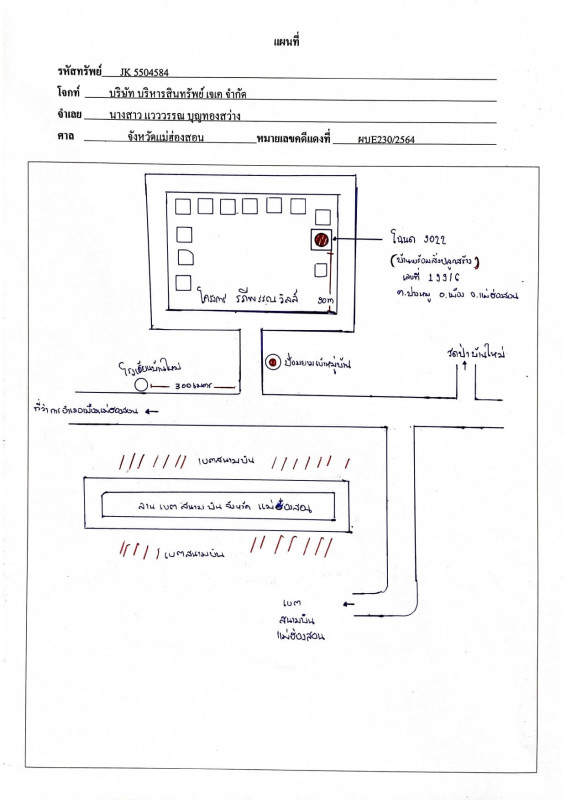 แผนที่
รหัสทรัพย์ JK 5504584
โจทก์ บริษัท บริหารสินทรัพย์ เจเค จำกัด
จำเลย นางสาว แวววรรณ บุญทองสว่าง
ศาล จังหวัดแม่ฮ่องสอน หมายเลขคดีแดงที่ ผบE230/2564
โฉนด 9022
(บ้านพร้อมสิ่งปลูกสร้าง)
เลขที่ 199/6
ต.ปางหมู อ.เมือง จ.แม่ฮ่องสอน
โครงการ วิลล์ 90 m
ป้อมยามหมู่บ้าน
วัดป่าบ้านใหม่
โรงเรียนบ้านใหม่
300 เมตร
ที่ว่าการอำเภอเมืองแม่ฮ่องสอน
เขตสนามบิน
ลาน เขต สนาม บิน จังหวัด แม่ฮ่องสอน
เขตสนามบิน
เขต
สนามบิน
แม่ฮ่องสอน